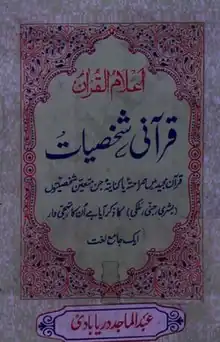 اعلام القرآن
قرآنی شخصیات
قرآن مجید میں صراحتہً یا کنایتہً جن متعین شخصیتوں
(بشری، جنّی، ملکی) کا ذکر آیا ہے اُن کا تہجی وار
ایک جامع لغت
عبدالماجد دریابادیؒ